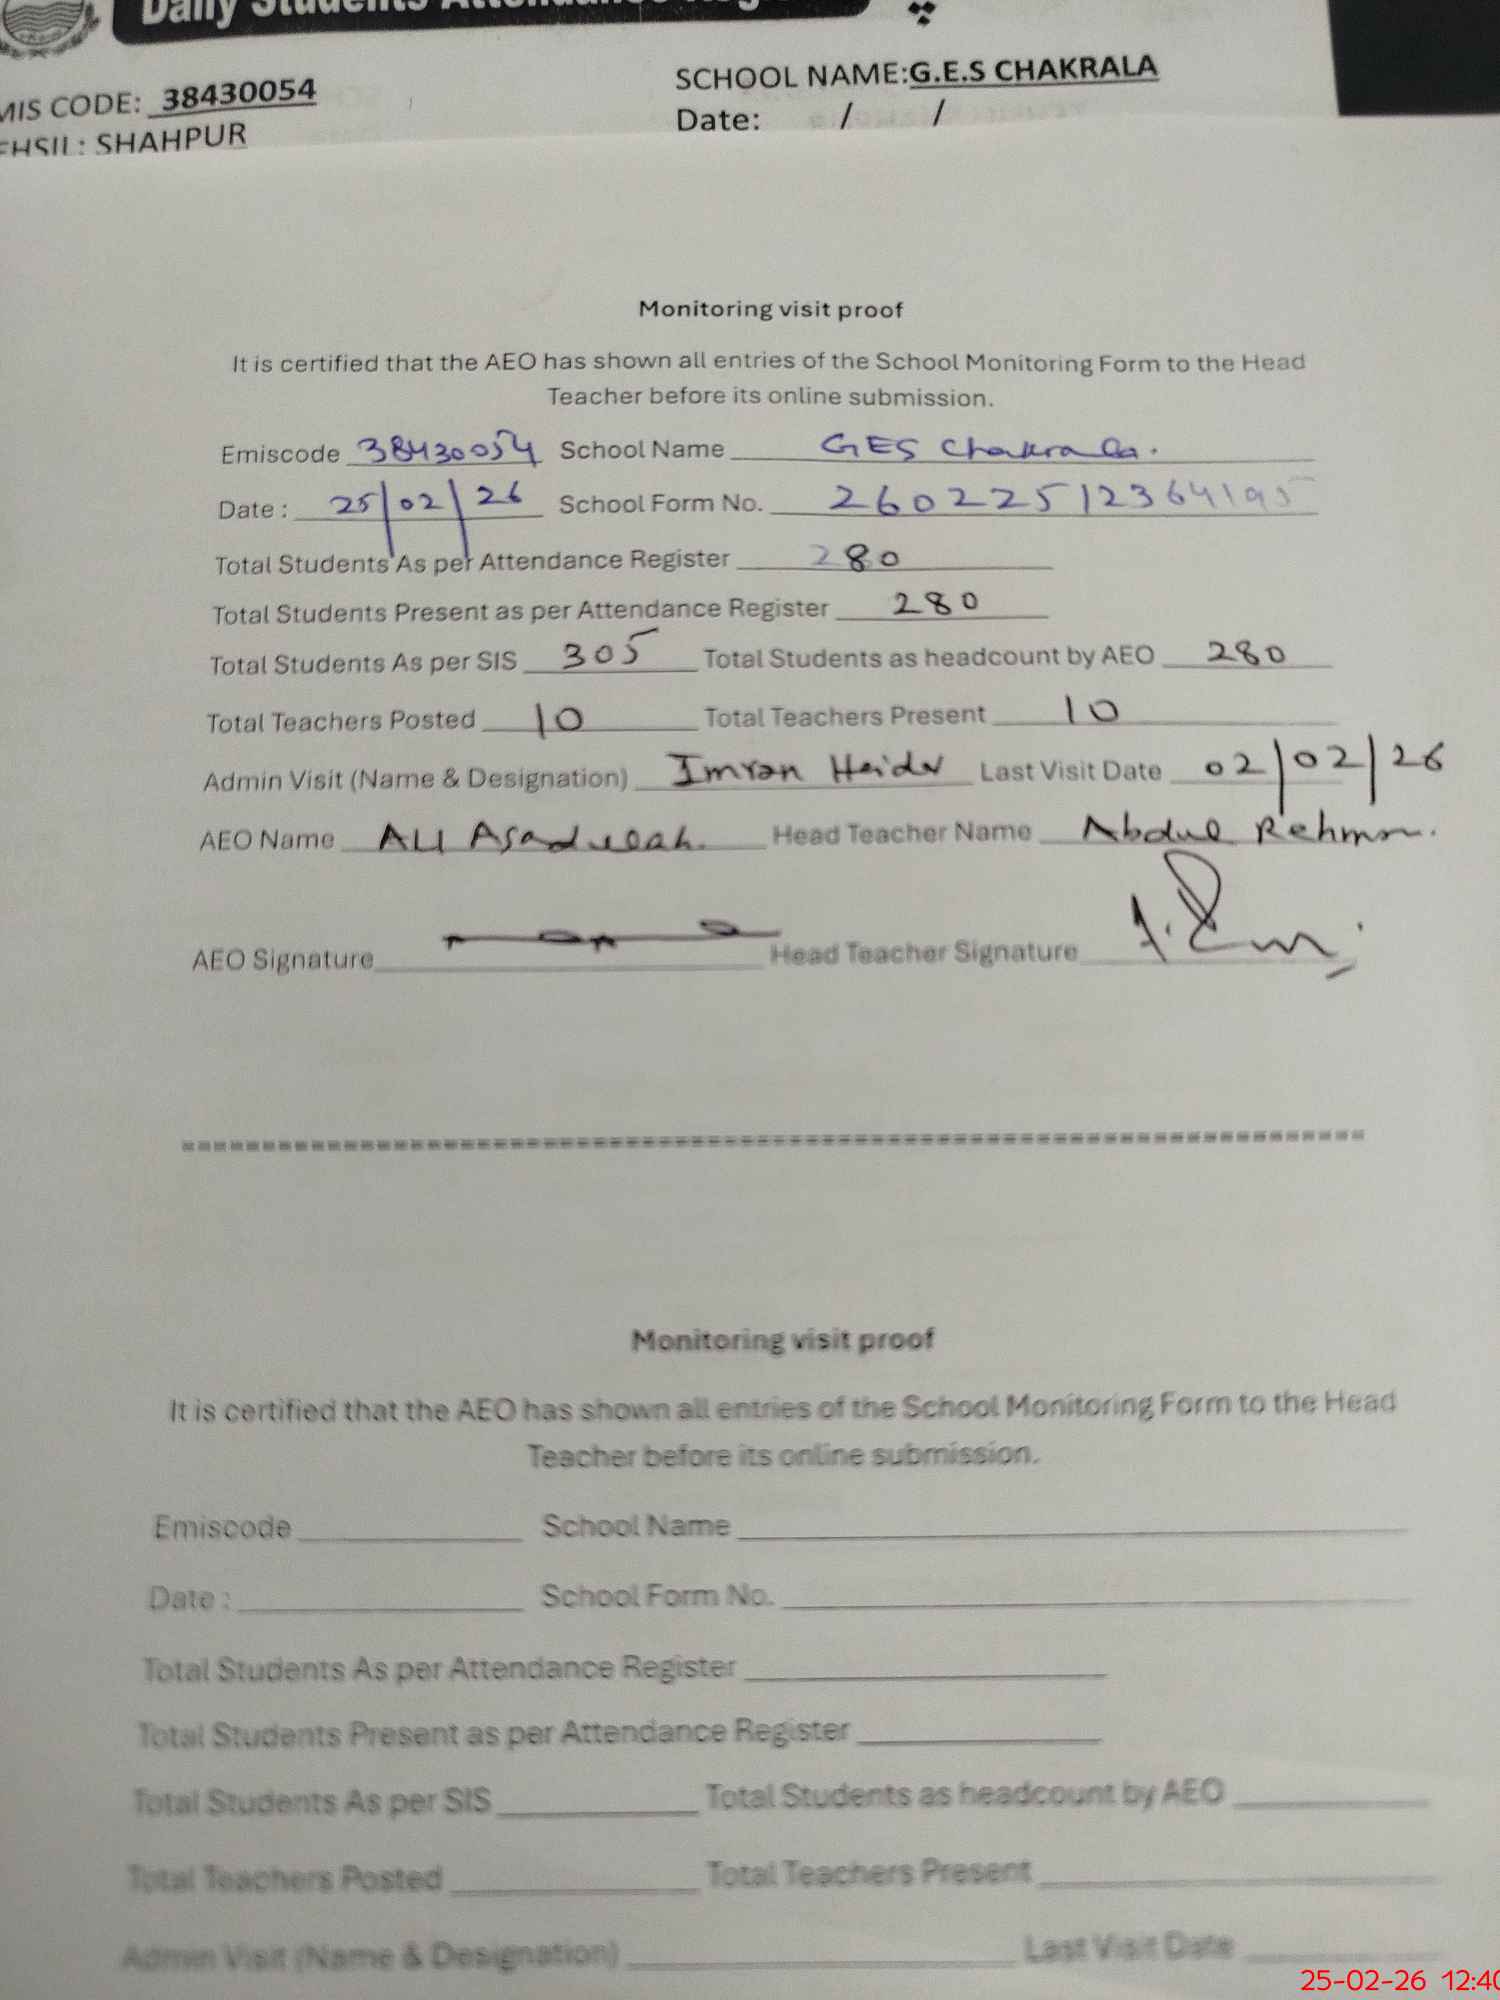 Daily Students Attendance Regis
MIS CODE: 38430054
SCHOOL NAME:G.E.S CHAKRALA
EHSIL: SHAHPUR
Date: / /
Monitoring visit proof
It is certified that the AEO has shown all entries of the School Monitoring Form to the Head
Teacher before its online submission.
Emiscode 38430054 School Name GES Chakrala.
Date : 25/02/26 School Form No. 26022512364195
Total Students As per Attendance Register 280
Total Students Present as per Attendance Register 280
Total Students As per SIS 305 Total Students as headcount by AEO 280
Total Teachers Posted 10 Total Teachers Present 10
Admin Visit (Name & Designation) Imran Haider Last Visit Date 02/02/26
AEO Name Ali Asadullah. Head Teacher Name Abdul Rehman.
AEO Signature Head Teacher Signature
Monitoring visit proof
It is certified that the AEO has shown all entries of the School Monitoring Form to the Head
Teacher before its online submission.
Emiscode School Name
Date : School Form No.
Total Students As per Attendance Register
Total Students Present as per Attendance Register
Total Students As per SIS Total Students as headcount by AEO
Total Teachers Posted Total Teachers Present
Admin Visit (Name & Designation) Last Visit Date
25-02-26 12:40